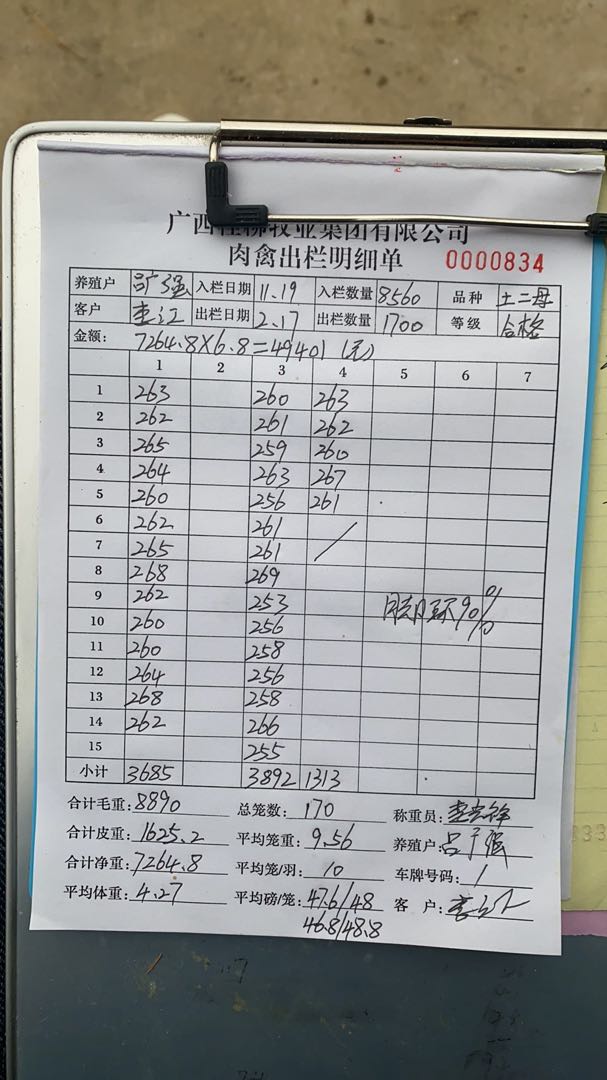 广西桂柳牧业集团有限公司
肉禽出栏明细单 0000834
养殖户 吕广强 入栏日期 11.19 入栏数量 8560 品种 土二母
客户 李江 出栏日期 2.17 出栏数量 1700 等级 合格
金额: 7264.8×6.8=49401(元)
1 2 3 4 5 6 7
1 263 260 263
2 262 261 262
3 265 259 260
4 264 263 267
5 260 256 261
6 262 261
7 265 261
8 268 269
9 262 253 90%
10 260 256
11 260 258
12 264 256
13 268 258
14 262 266
15 255
小计 3685 3892 1313
合计毛重: 8890 总笼数: 170 称重员:
合计皮重: 1625.2 平均笼重: 9.56 养殖户: 吕广强
合计净重: 7264.8 平均笼/羽: 10 车牌号码: 1
平均体重: 4.27 平均磅/笼: 47.6/48 客 户:
46.8/48.8